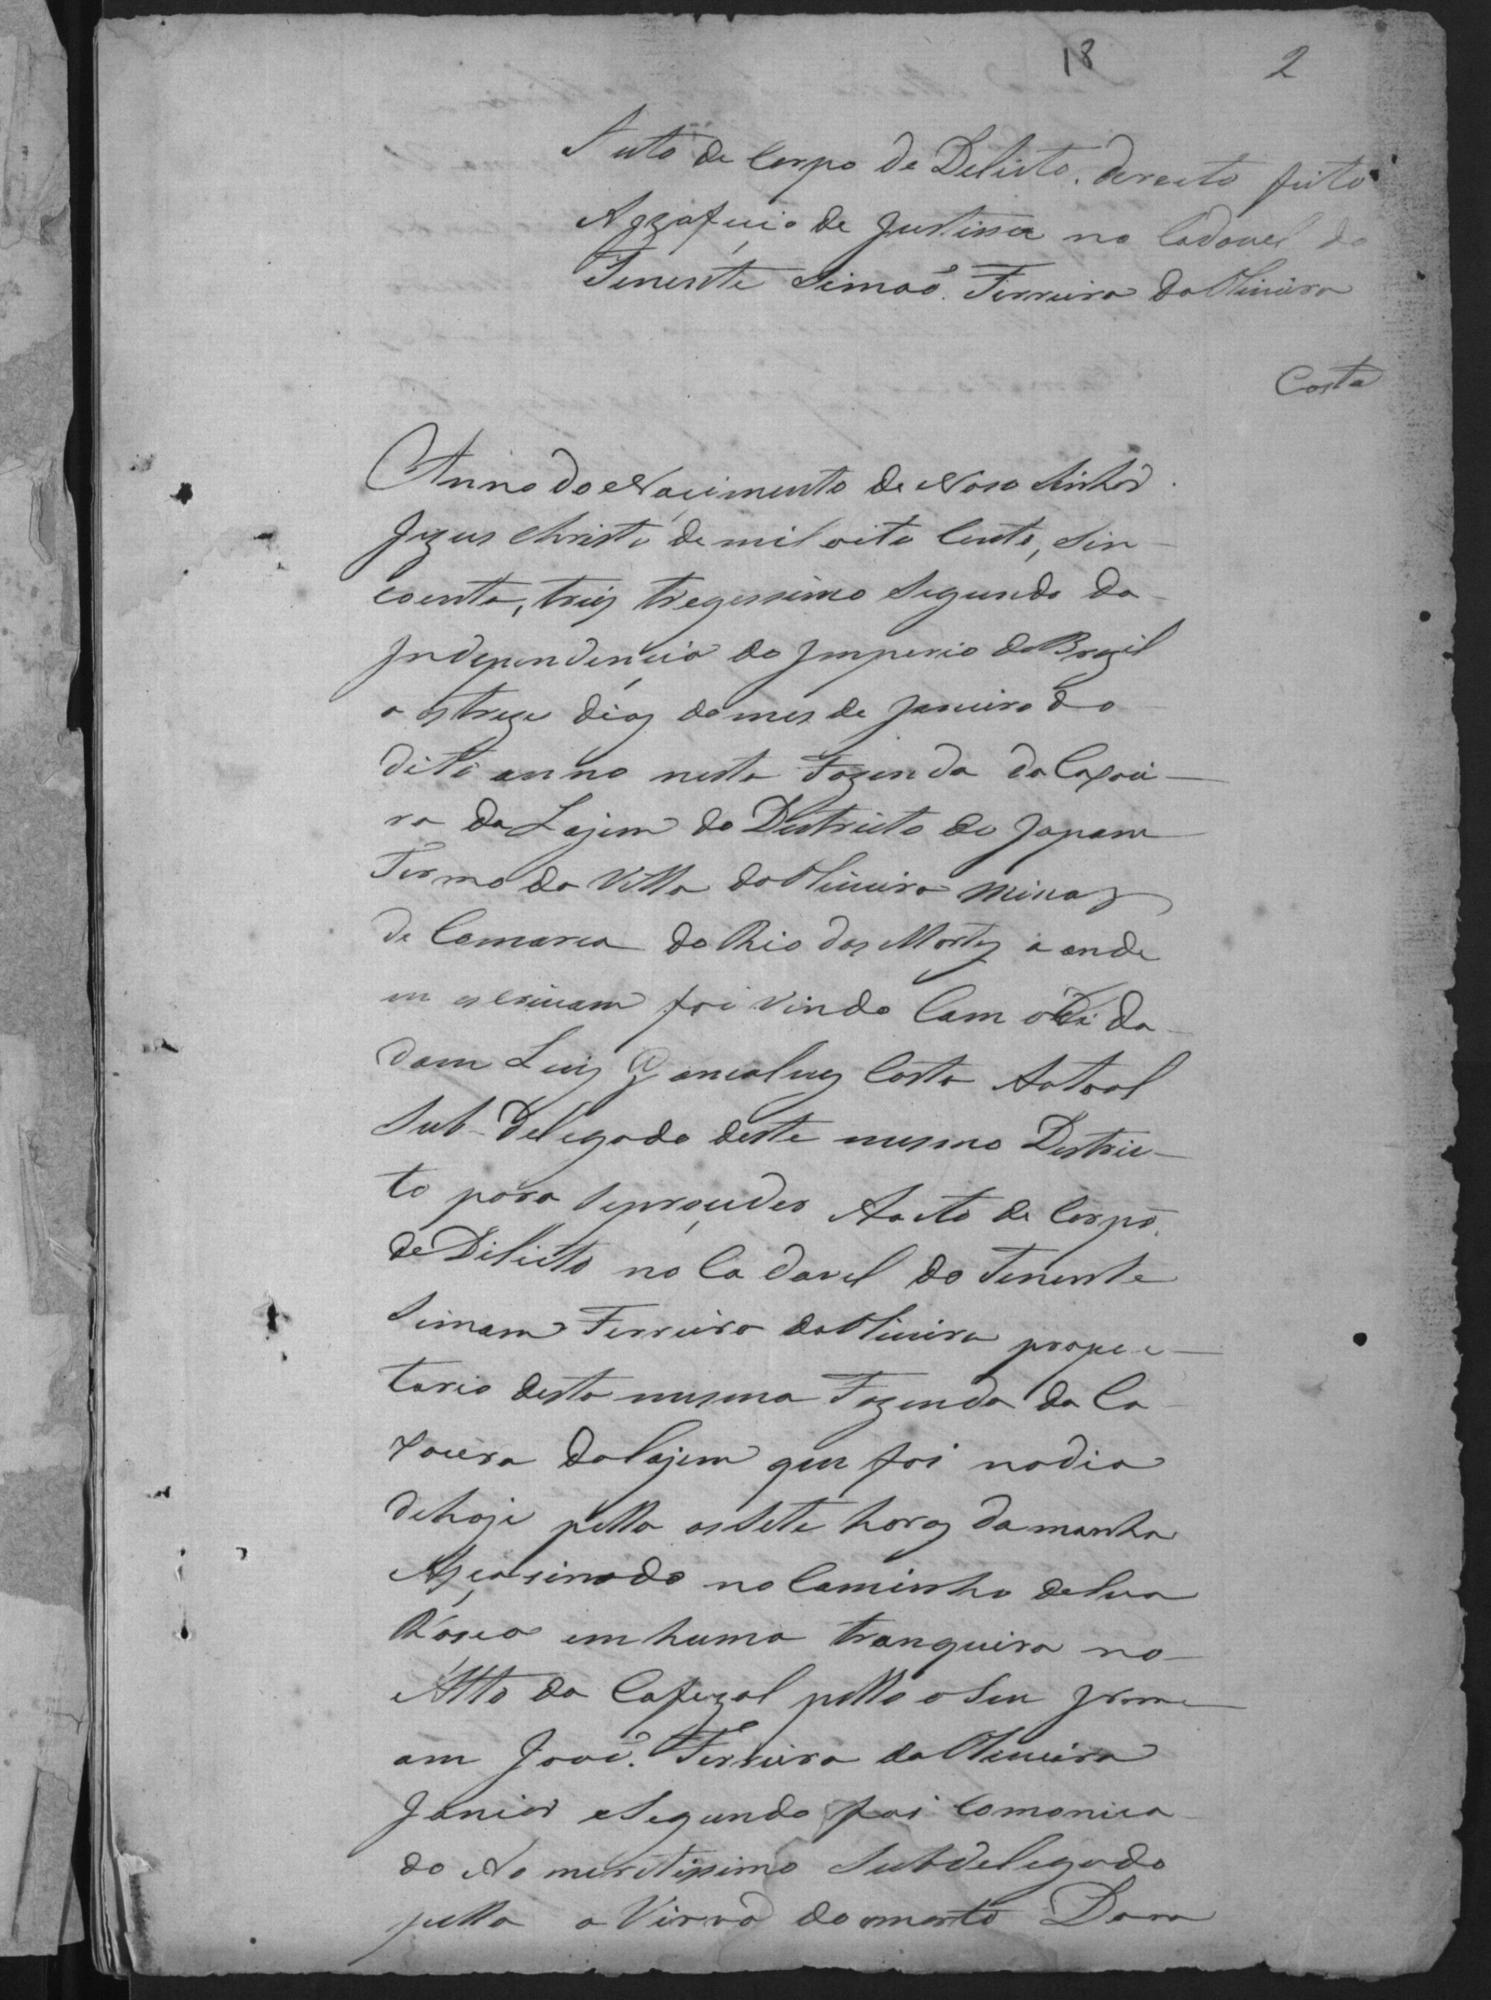 18 2
Auto de Corpo de Delicto. derecto feito
Aqzoficio de Justissa no Cadavel do
Tenente Simaõ. Ferreira da Oliveira
Costa
Anno do Nacimento de Noso Sinhór
Jezus Christo de mil oito Cento, Sin-
coenta, treis tregessimo Segundo da
Independencia do Imperio do Brazil
aostreze dias domes de Janeiro do
dito anno nesta Fazenda da Capoei-
ra da Lajem do Destricto do Japam
Termo da Villa da Oliveira Minas
de Comarca do Rio das Mortes aonde
eu escrivam foi vindo Com o Cida-
dam Luis Goncalves Costa Autoal
Sub-Delegado deste mesmo Destric-
to para seproceder Aoto de Corpo.
de Dilicto no Cadavel do Tenente
Simam Ferreira da Oliveira propie-
tario desta mesma Fazenda da Ca-
poeira dalajem que foi nodia
dehoje pella as Sete horas damanha
Asçasinado no Caminho deSua
Rosca em huma tranqueira no
Alto do Cafezal pello o Seu Irm-
am José. Ferreira da Oliveira
Junior eSegundo foi Comonica-
do Ao meretissimo Subdelegado
pella a Viuva do morto Dona